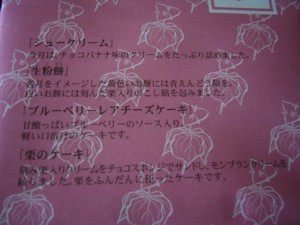 「シュークリーム」
今月は、チョコバナナ味のクリームをたっぷり詰めました。
「生粉餅」
名月をイメージした黄色いお餅には青えんどう餡を、
白いお餅には刻んだ栗入りのこし餡を包みました。
「ブルーベリーレアチーズケーキ」
甘酸っぱいブルーベリーのソース入り。
軽い口溶けのケーキです。
「栗のケーキ」
刻み栗入りクリームをチョコスポンジでサンドし、モンブランクリームを
絞りました。栗をふんだんに使ったケーキです。